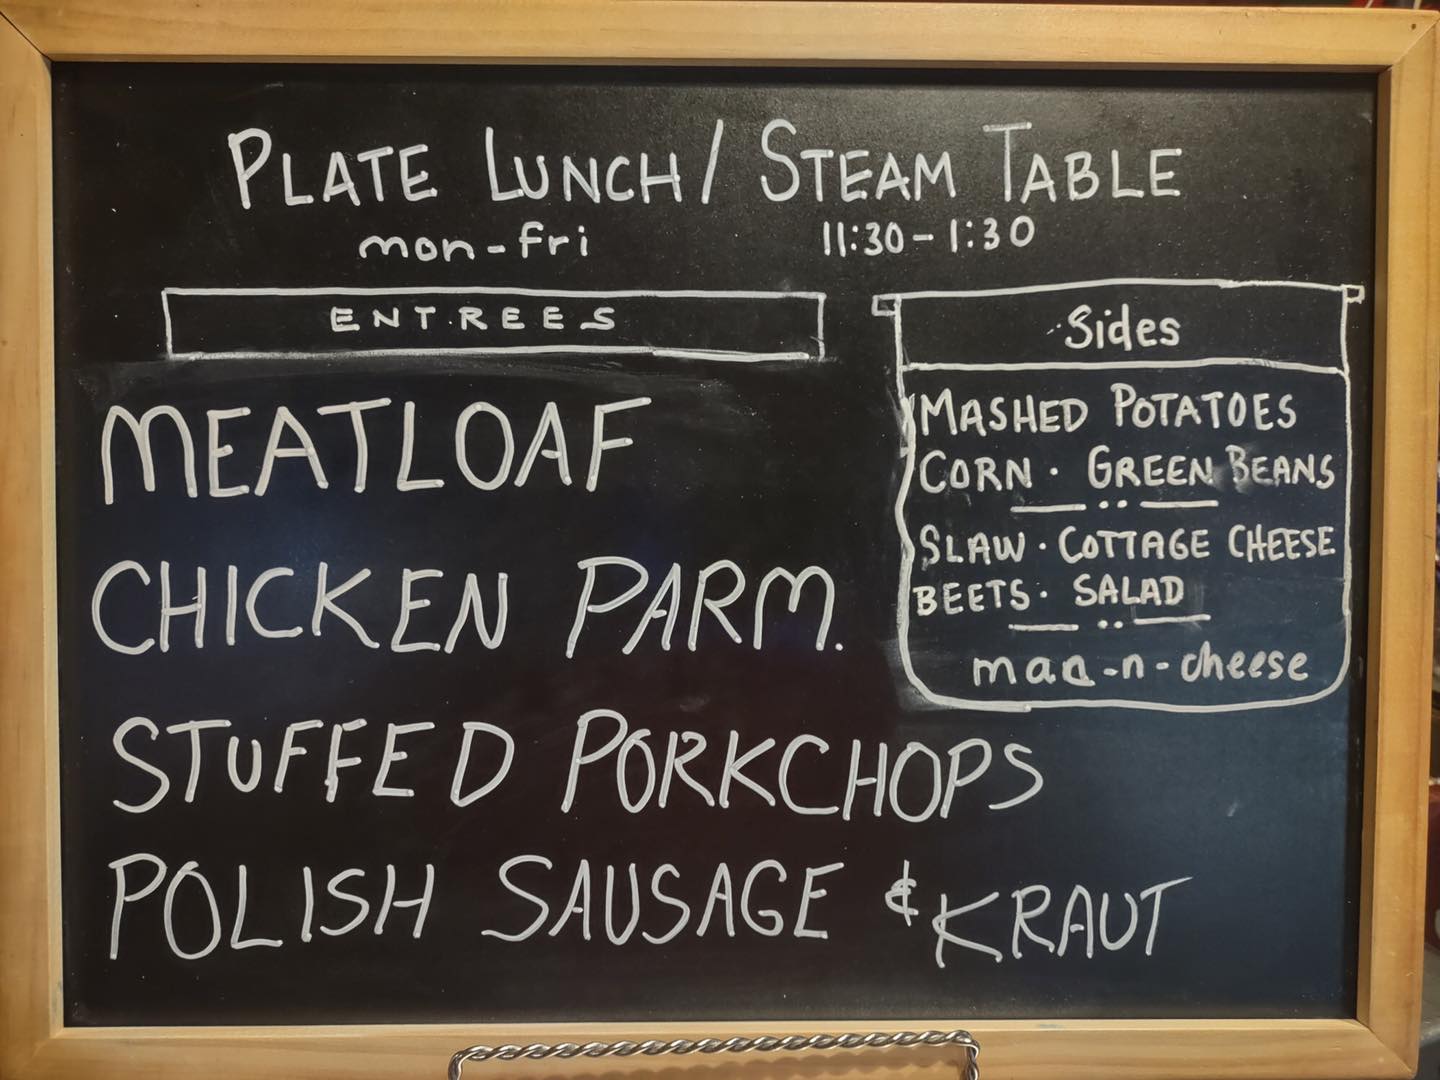 PLATE LUNCH / STEAM TABLE
mon-fri 11:30-1:30
ENTREES
MEATLOAF
CHICKEN PARM.
STUFFED PORKCHOPS
POLISH SAUSAGE & KRAUT
Sides
MASHED POTATOES
CORN · GREEN BEANS
SLAW · COTTAGE CHEESE
BEETS · SALAD
mac-n-cheese